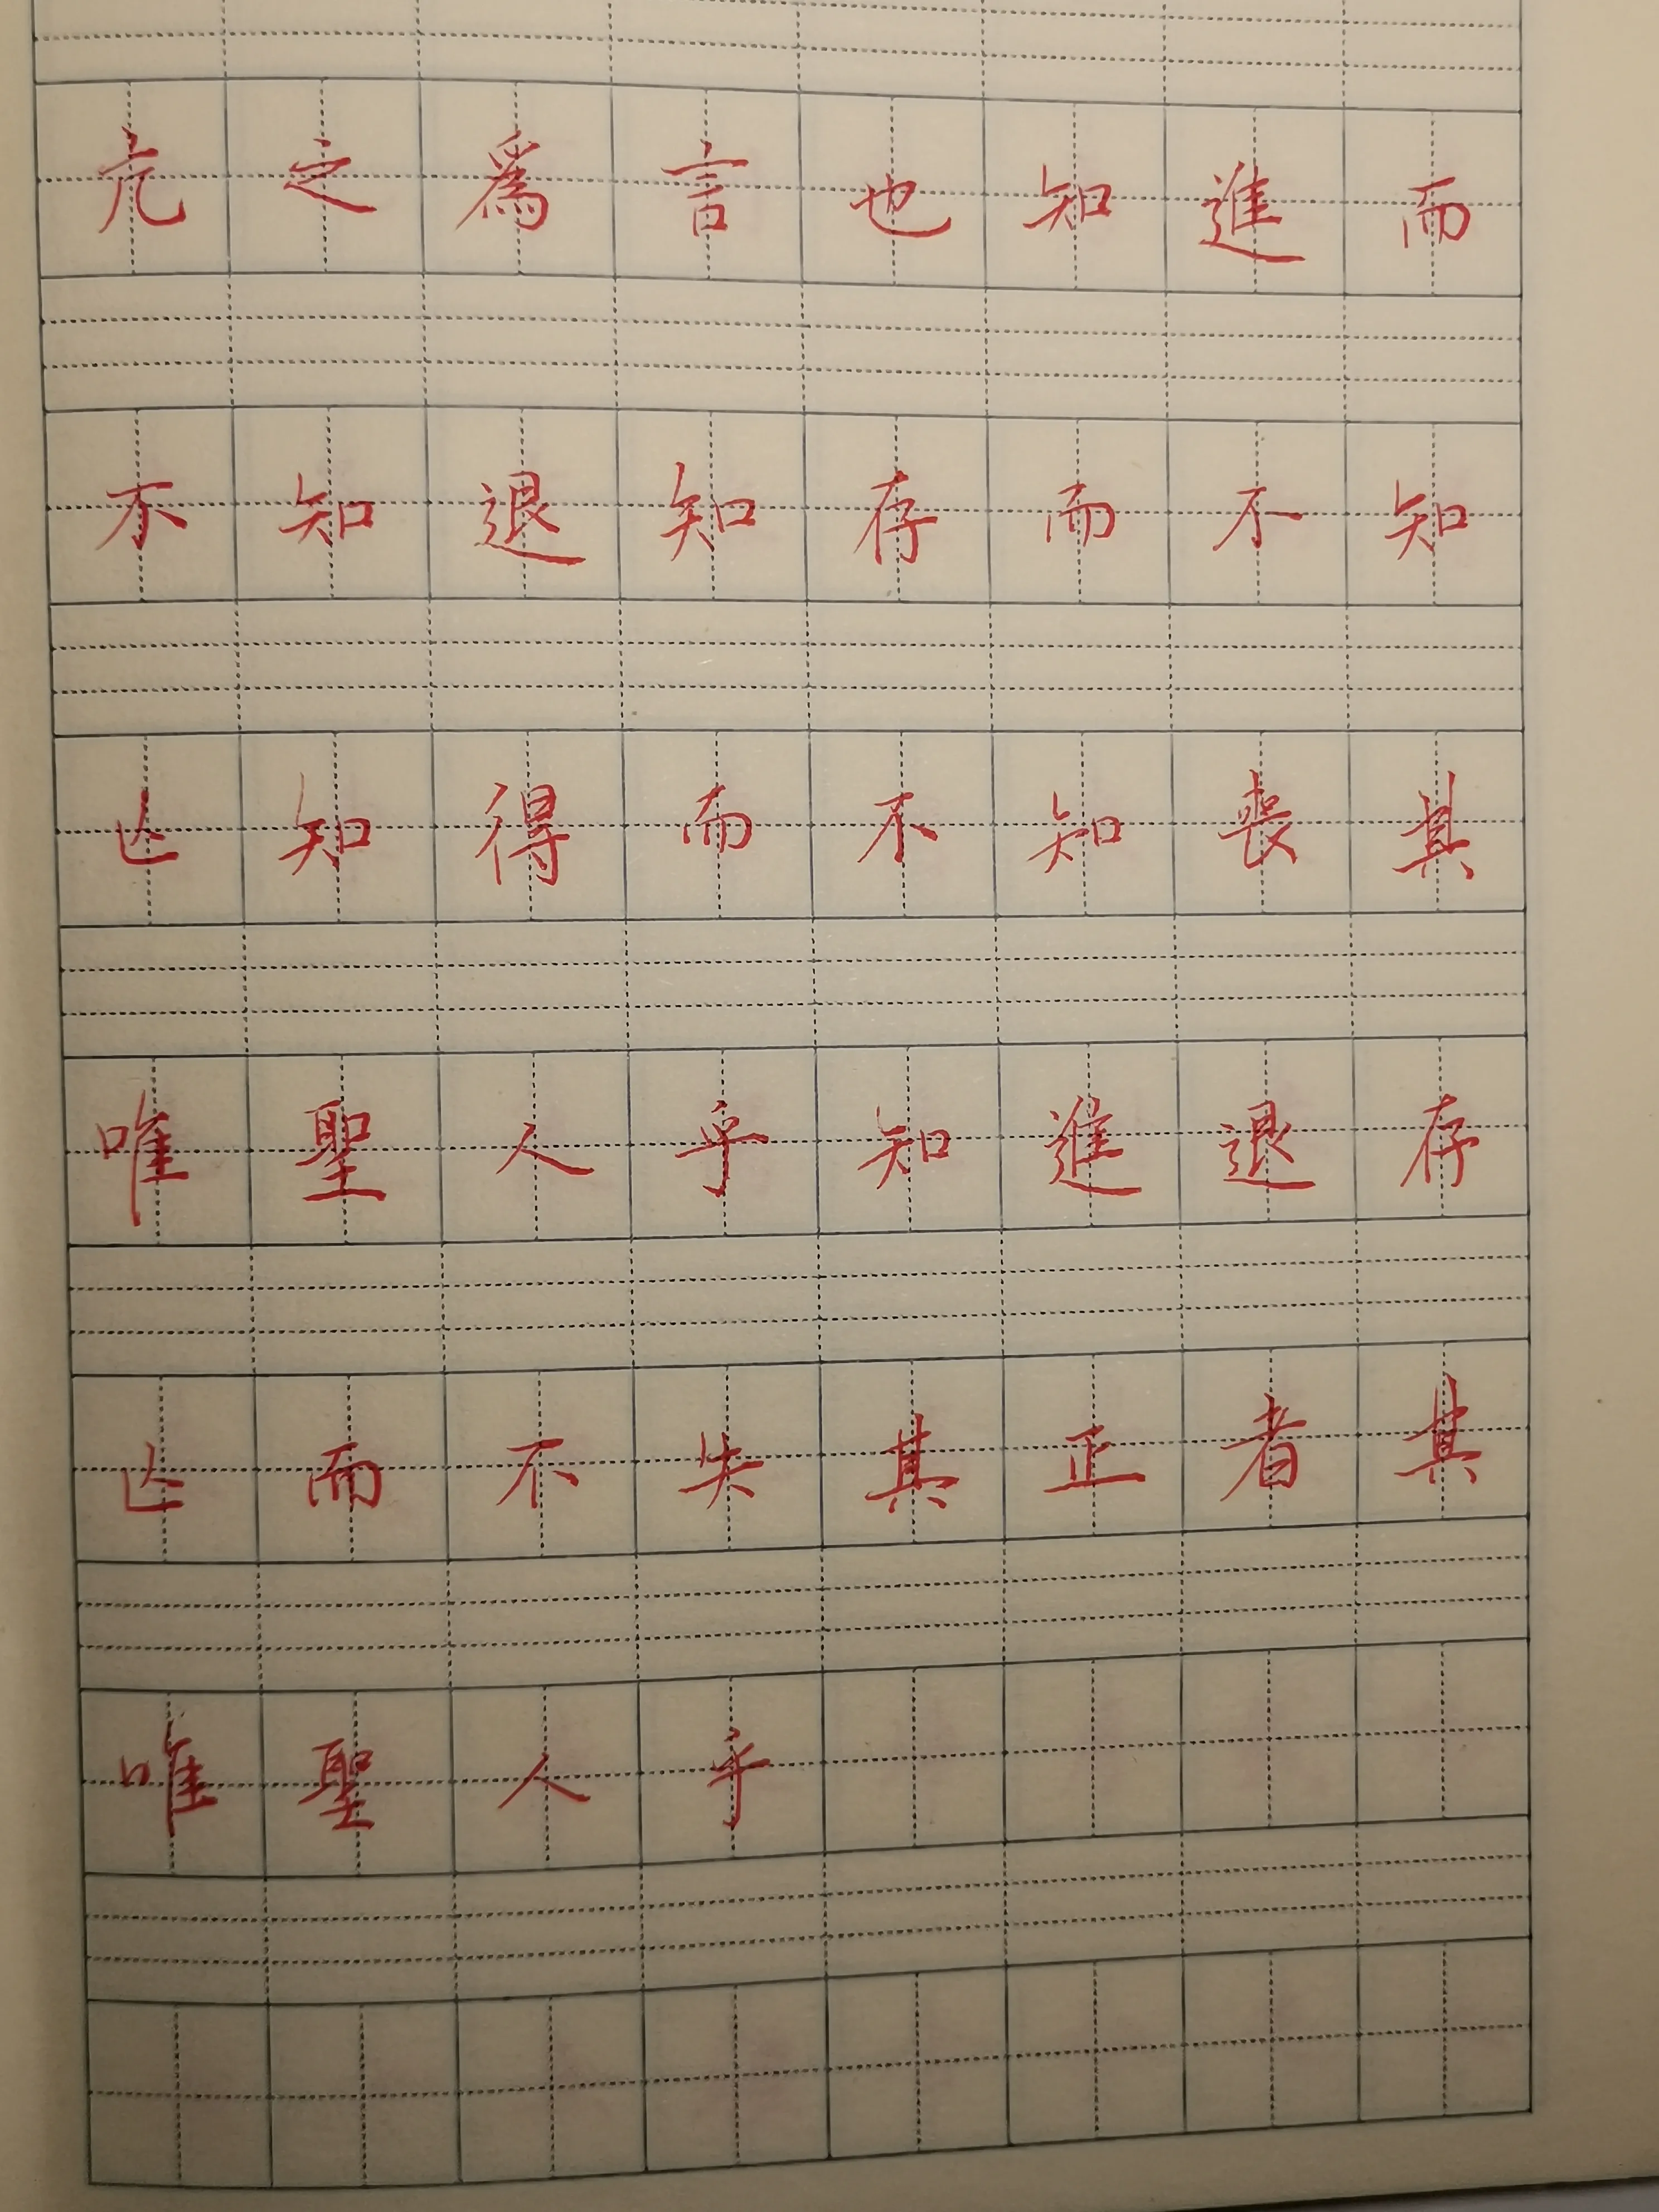 亢之為言也知進而
不知退知存而不知
亾知得而不知喪其
唯聖人乎知進退存
亾而不失其正者其
唯聖人乎